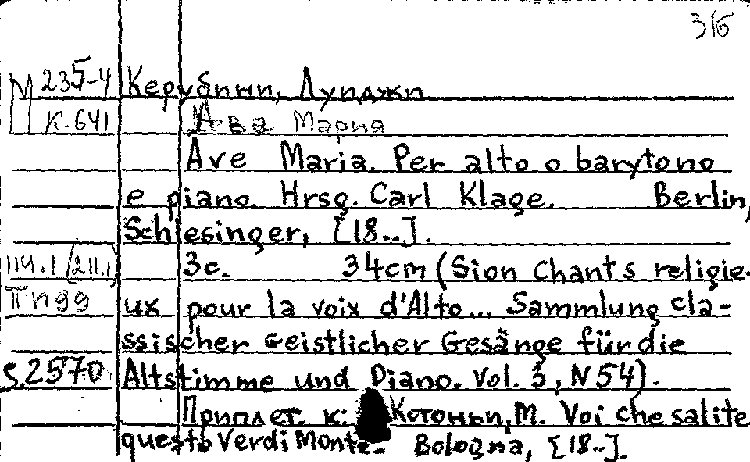 316
М 235-4 Керубини, Луиджи
К-641 Аве Мария
Ave Maria. Per alto o barytono
e piano. Hrsg. Carl Klage. Berlin,
Schlesinger, [18..].
3с. 34cm (Sion Chants religie-
ux pour la voix d'Alto... Sammlung cla-
ssischer Geistlicher Gesänge für die
S.2570 Altstimme und Piano. Vol. 3, N54).
Приплет. к: М. Voi che salite
questo Verdi Monte. Bologna, [18..].